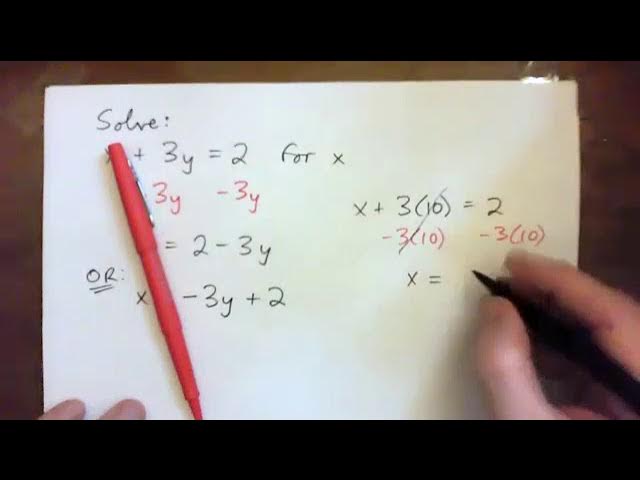 Solve:
x + 3y = 2 for x
3y -3y
= 2 - 3y
OR:
x -3y + 2
x + 3(10) = 2
-3(10) -3(10)
x =